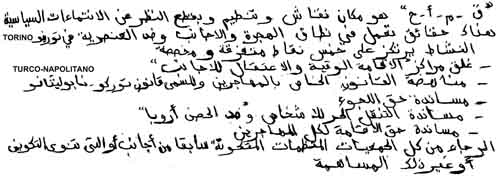 "ق - م - أ - ح" هو مكان نقاش و تنظيم و بغض النظر عن الانتماءات السياسية
هناك حقائق تعمل في نطاق الهجرة و الاجانب وضد العنصرية في تورينو TORINO
النشاط يرتكز على خمس نقاط متفرقة و مخصصة
- غلق مراكز "الاقامة الوقتية والاعتقال للأجانب" TURCO-NAPOLITANO
- مناهضة القانون الخاص بالمهاجرين والمسمى قانون توركو-نابوليتانو
- مساندة حق اللجوء
- مساندة التنقل الحر للأشخاص و"ضد الحصن أروبا"
- مساندة حق الاقامة لكل المهاجرين
الرجاء من كل الجمعيات المنظمات المتكونة سابقا من أجانب أو التي تنوي التكوين
أو غير ذلك المساهمة